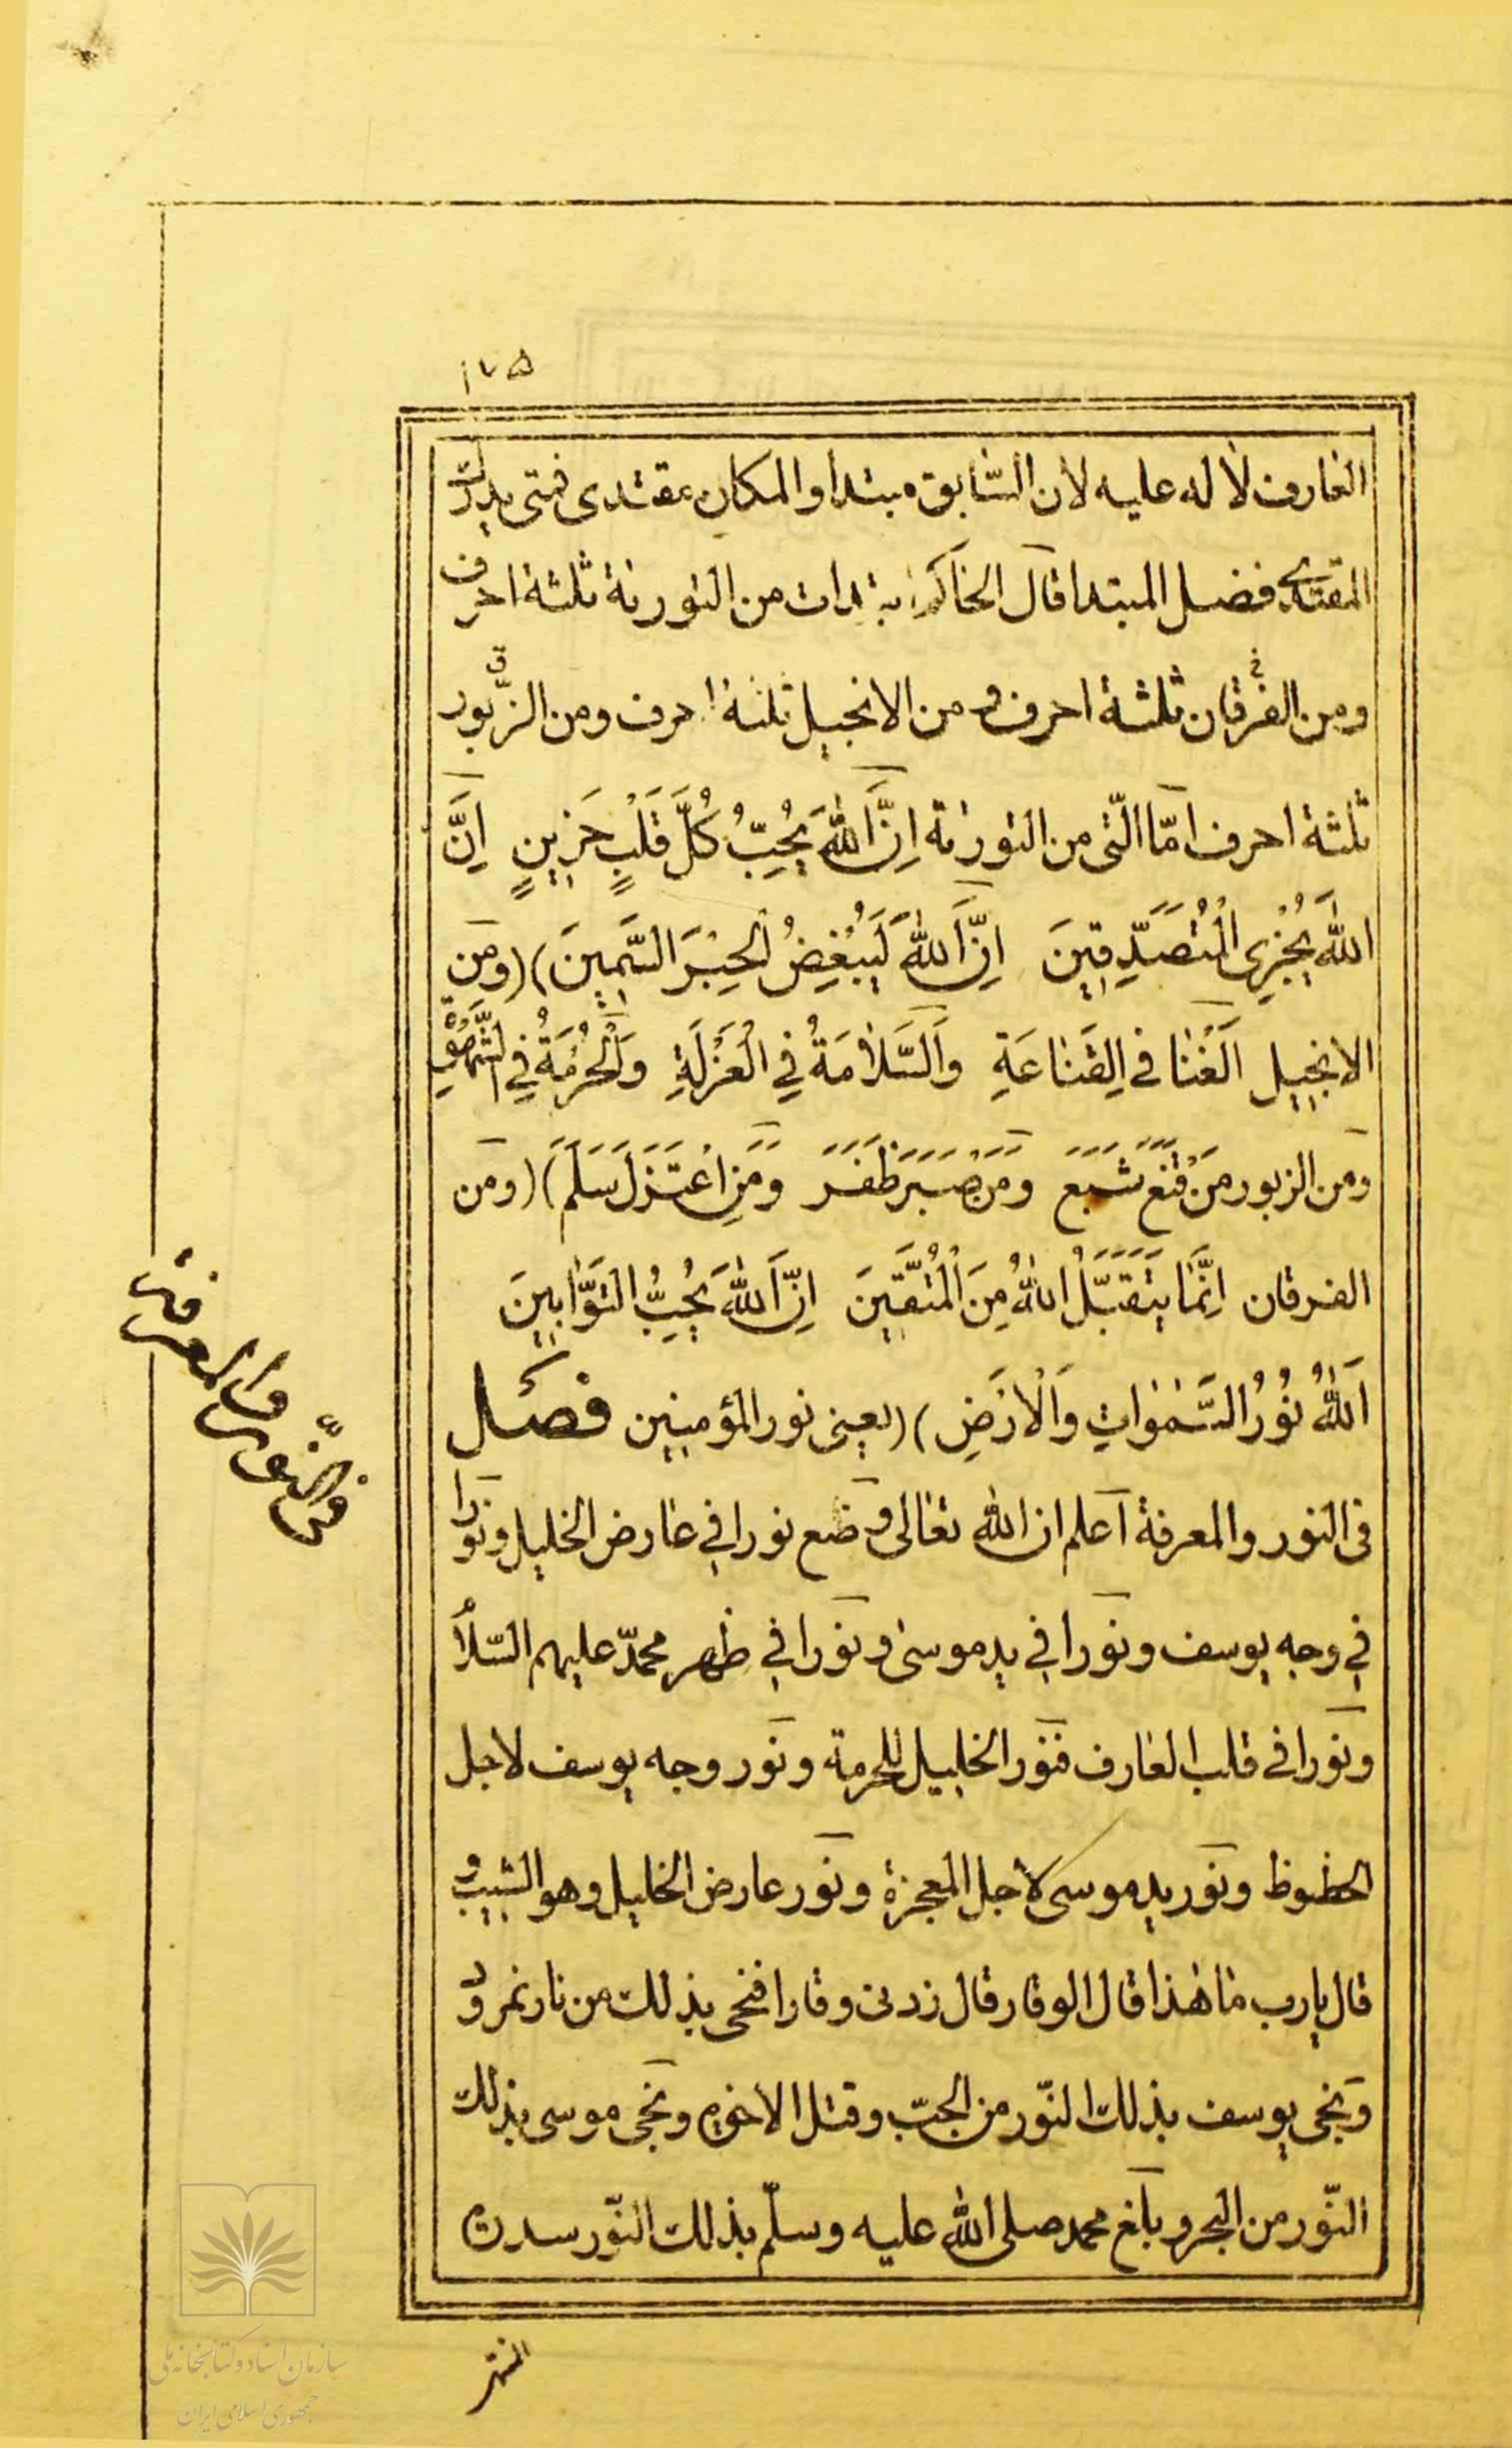 ١٧٥
العارف لا له عليه لان السّابق مبتدا والمكان مقتدى فمتى يدرك
المقتدى فضل المبتدا قال الحاكم ابتدات من التورية ثلثة احرف
ومن الفرقان ثلثة احرف و من الانجيل ثلثة احرف ومن الزّبور
ثلثة احرف امّا الّتى من التورية اِنَّ اللهَ يُحِبُّ كُلَّ قَلْبٍ حَزِينٍ اِنَّ
اللهَ يَجْزِى الْمُتَصَدِّقِينَ اِنَّ اللهَ لَيَبْغِضُ الْحِبْرَ السَّمِينَ) (ومن
الانجيل اَلْغَنا في القَناعَةِ وَالسَّلامَةُ فِي الْعَزْلَةِ وَالْحُرْمَةُ فِي
ومن الزبور مَنْ قَنَعَ شَبَعَ وَمَنْ صَبَرَ ظَفَرَ وَمَنِ اعْتَزَلَ سَلَمَ) (ومن
الفرقان اِنَّمَا يَتَقَبَّلُ اللهُ مِنَ الْمُتَّقِينَ اِنَّ اللهَ يُحِبُّ التَّوَّابِينَ
اَللهُ نُورُ السَّمٰوَاتِ وَالْاَرْضِ) (يعنى نور المؤمنين فصل
فى النور والمعرفة اعلم ان الله تعالى وضع نورا في عارض الخليل ونورا
في وجه يوسف ونورا في يد موسى ونورا في ظهر محمّد عليهم السّلام
ونورا في قلب العارف فنور الخليل للحرمة ونور وجه يوسف لاجل
الحظوظ ونور يد موسى لاجل المعجزة ونور عارض الخليل وهو الشيب و
قال يارب ما هذا قال الوقار قال زدنى وقارا فنجى بذلك من نار نمرود
ونجى يوسف بذلك النّور من الجبّ وقتل الاخوة ونجى موسى بذلك
النّور من البحر وبلغ محمد صلى الله عليه وسلّم بذلك النّور سدرة
فى النّور والمعرفة
سازمان اسناد و کتابخانه ملی
جمهوری اسلامی ایران